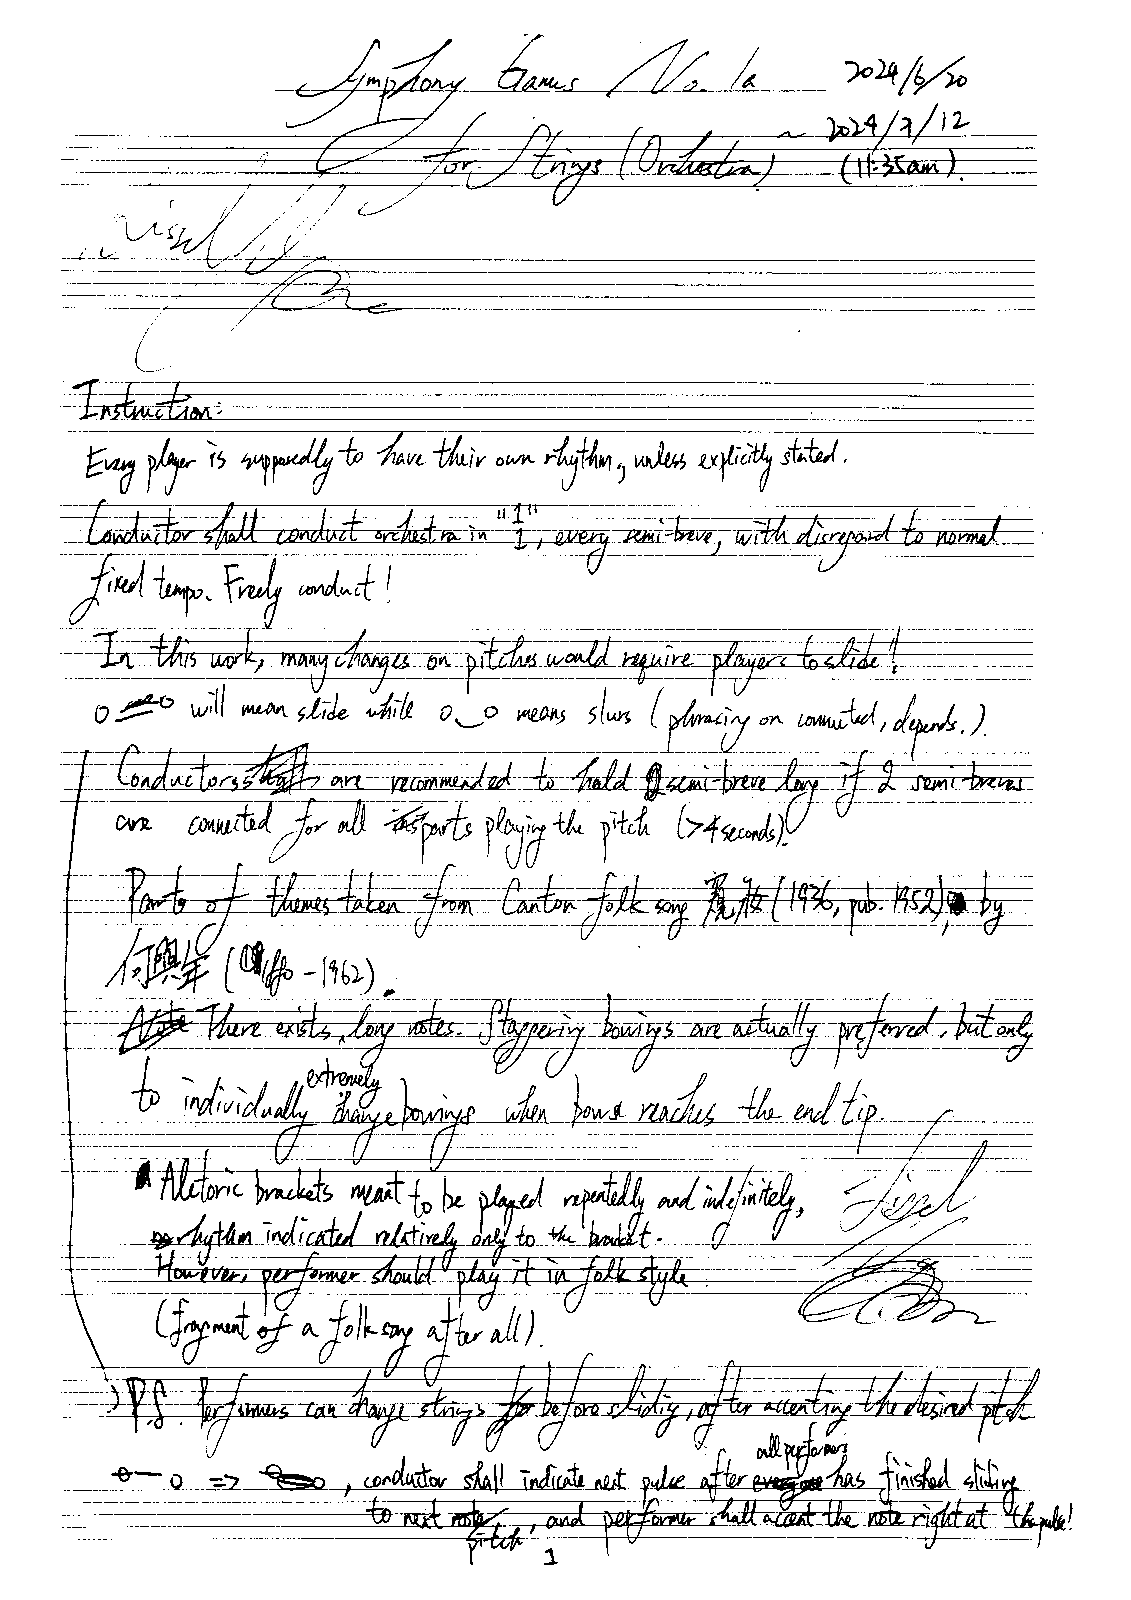 Symphony No. 1a 2024/6/20
for Strings (Orchestra) ~ 2024/7/12
(11:35am).
Instruction:
Every player is supposedly to have their own rhythm, unless explicitly stated.
Conductor shall conduct orchestra in "1/1", every semi-breve, with disregard to normal
fixed tempo. Freely conduct!
In this work, many changes on pitches would require players to slide!
will mean slide while means slurs (phrasing or connected, depends.).
Conductors are recommended to hold 2 semi-breve long if 2 semi-breves
are connected for all parts playing the pitch (>4 seconds).
Parts of themes taken from Canton folk song (1936, pub. 1952), by
何與年 ( - 1962).
There exists long notes. Staggering bowings are actually preferred, but only
to individually extremely change bowings when bows reaches the end tip.
Aletoric brackets meant to be played repeatedly and indefinitely,
rhythm indicated relatively only to the bracket.
However, performer should play it in folk style
(fragment of a folk song after all).
P.S. Performers can change strings before sliding, after accenting the desired pitch
=> , conductor shall indicate next pulse after all performers has finished sliding
to next pitch, and performer shall accent the note right at the pulse!
1